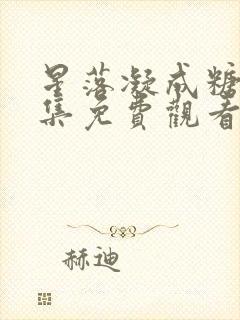 星落凝成糖
集免費觀看
赫迪